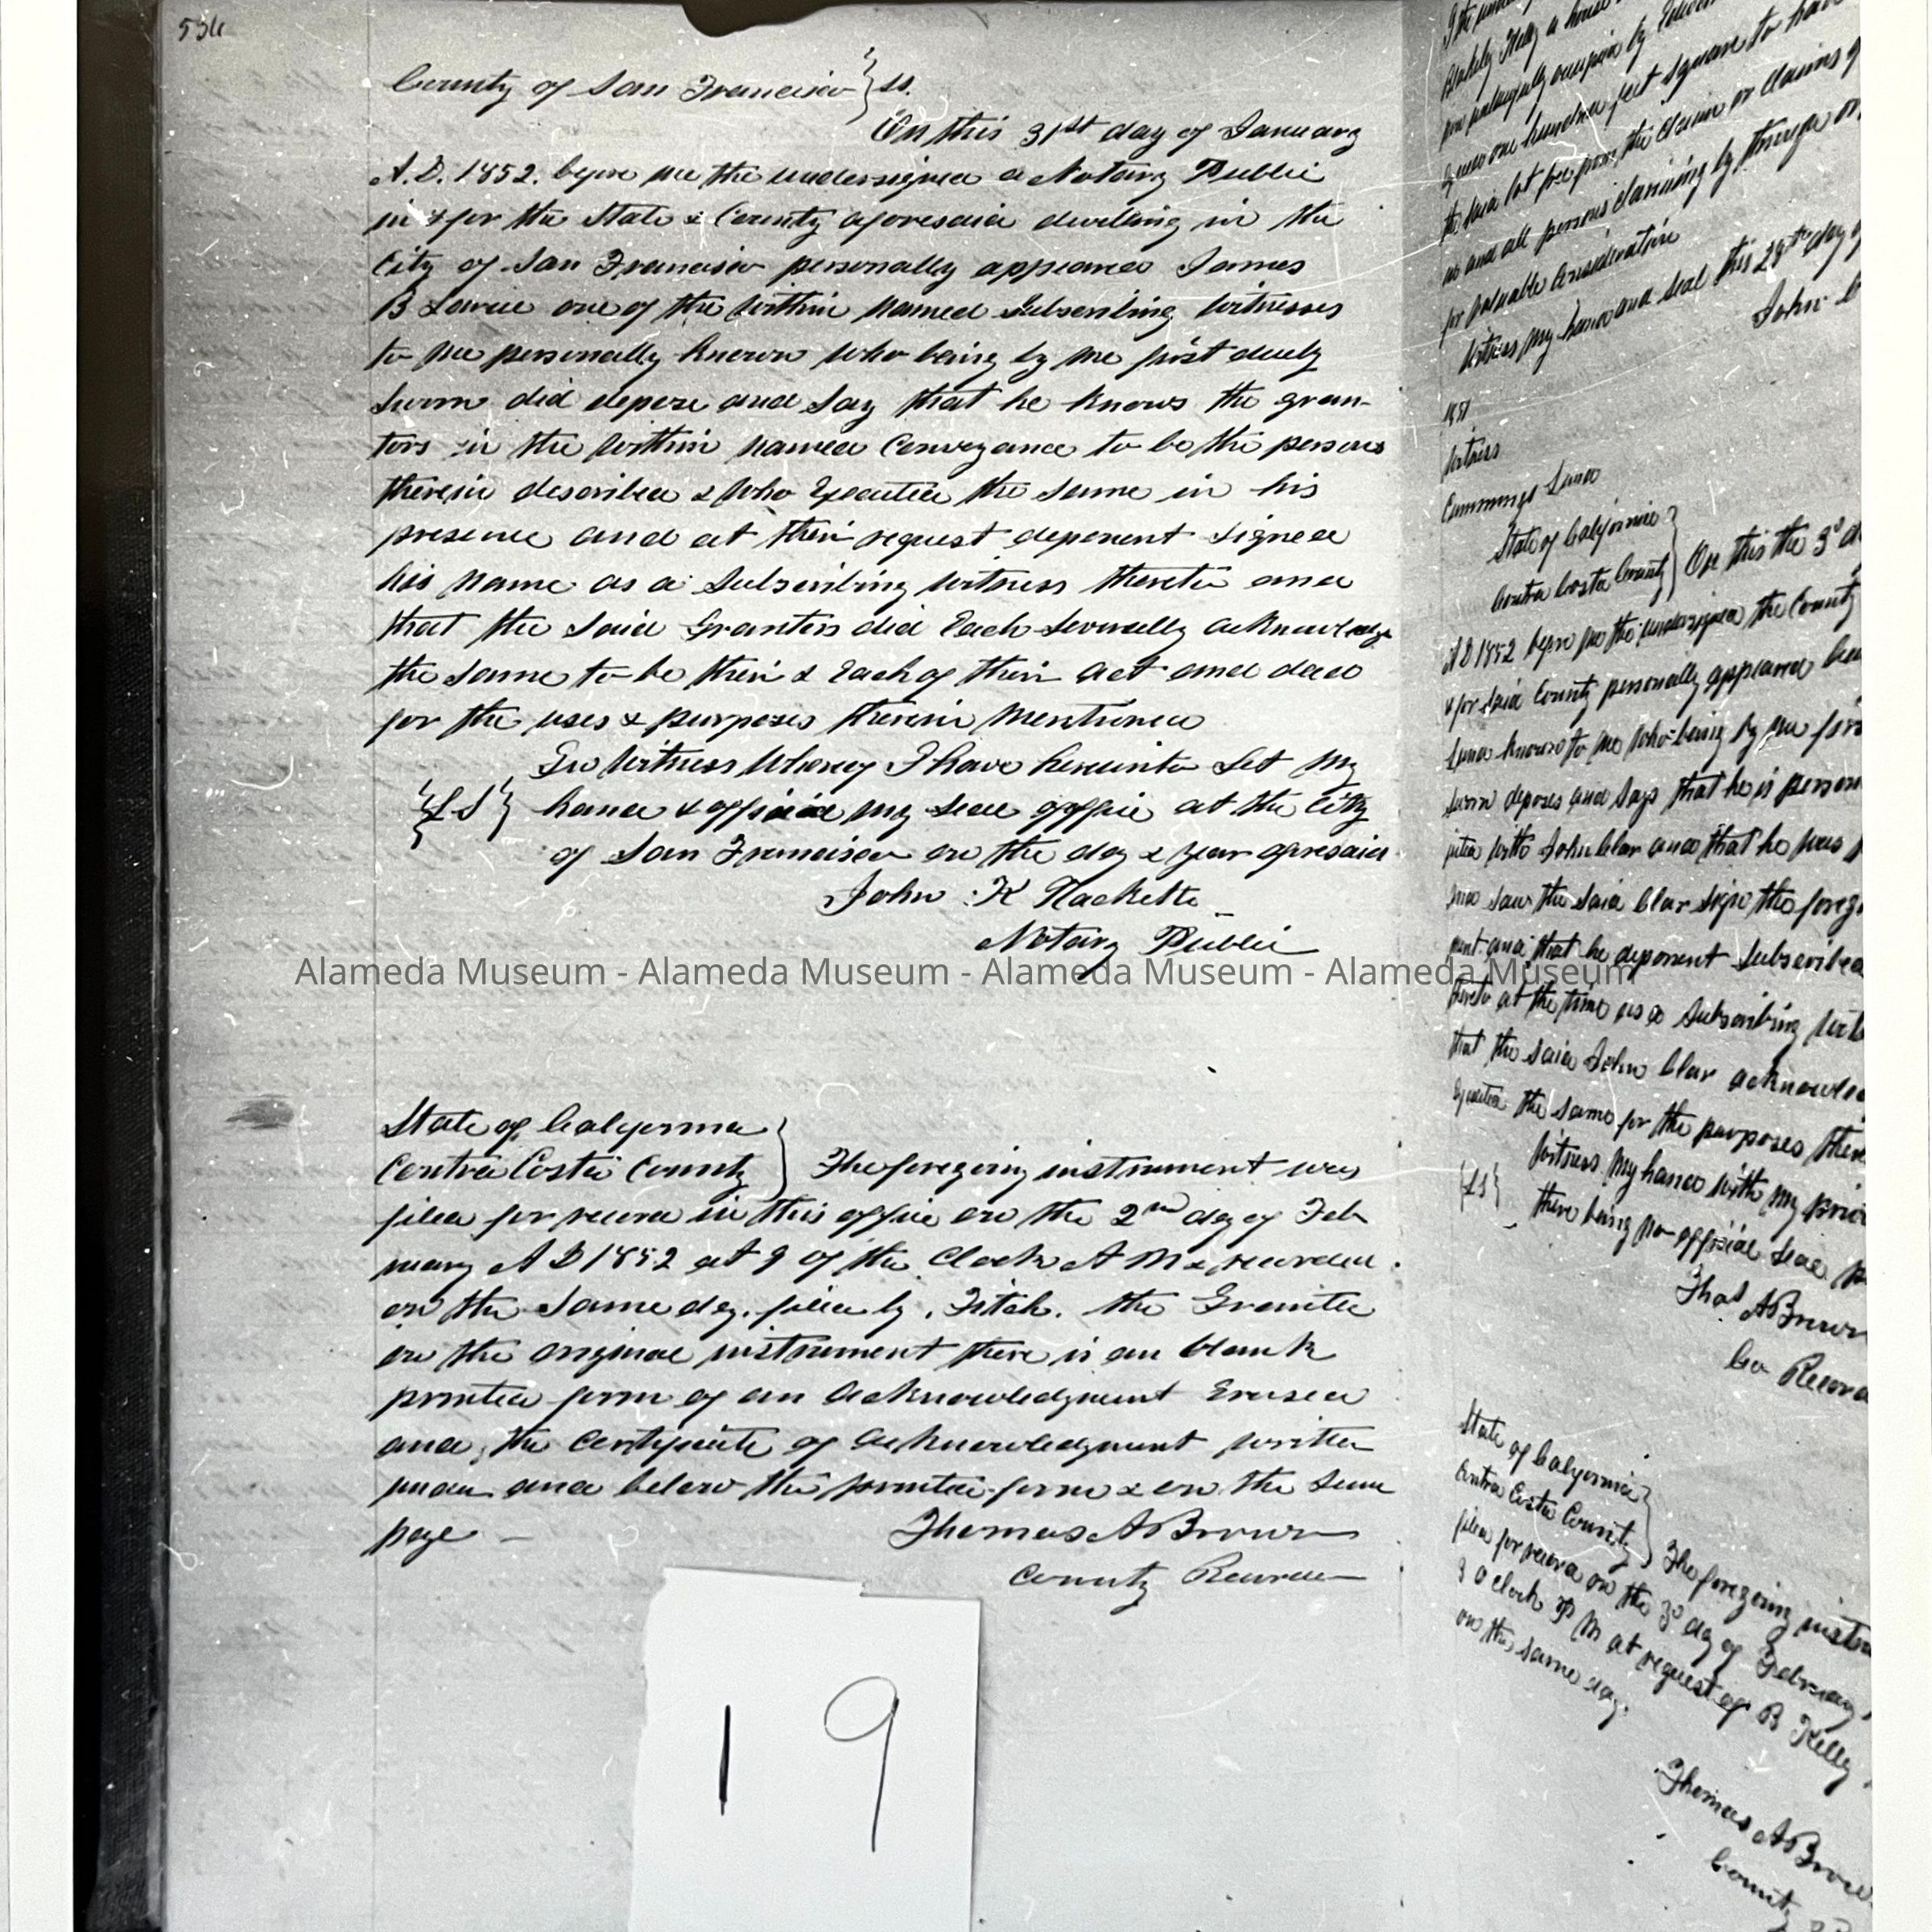 536
County of San Francisco } ss.
On this 31st day of January
A.D. 1852. before me the undersigned a Notary Public
in & for the State & County aforesaid dwelling in the
City of San Francisco personally appeared James
B Lavie one of the within named Subscribing witnesses
to me personally known who being by me first duely
sworn did depose and say that he knows the gran-
tors in the within named Conveyance to be the persons
therein described & who Executed the same in his
presence and at their request deponent signed
his name as a Subscribing witness thereto and
that the said Grantors did Each severally acknowledge
the same to be their & Each of their act and deed
for the uses & purposes therein mentioned
In witness Whereof I have hereunto set my
{LS} hand & affixed my seal of office at the City
of San Francisco on the day & year aforesaid
John K Hackett
Notary Public
Alameda Museum - Alameda Museum - Alameda Museum - Alameda Museum
State of California }
Contra Costa County } The foregoing instrument was
filed for record in this office on the 2nd day of Feb
ruary A D 1852 at 9 of the Clock A M & recorded
on the same day. filed by Fitch. the Grantee
on the original instrument there is an blank
printed form of an acknowledgment Erased
and the certificate of acknowledgment written
under and below the printed form & on the same
page
Thomas A Brown
County Recorder
19
Kelly a house
by
one hundred feet square to have
the said lot free from the claim or claims of
us and all persons claiming by through or
for valuable consideration
witness my hand and seal this 28th day of
John C
1851
witness
Cummings Luna
State of California }
Contra Costa County } On this the 3d d
A D 1852 before me the undersigned the County
& for said County personally appeared
Luna known to me who being by me firs
sworn deposes and says that he is person
with John Clar and that he was
and saw the said Clar sign the foreg
ment and that he deponent Subscribed
thereto at the time as a Subscribing wit
that the said John Clar acknowled
Executed the same for the purposes there
witness my hand with my priv
{LS} there being no official seal
Thos A Brown
Co Record
State of California }
Contra Costa County } The foregoing instru
filed for record on the 3d day of February
3 o clock P M at request of B Kelly
on the same day.
Thomas A Brow
County